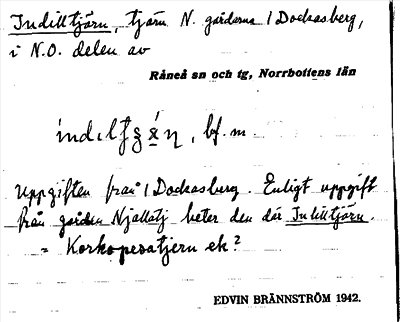 Indilltjärn, tjärn N. gårdarna i Dockasberg,
i N.O. delen av
Råneå sn och tg, Norrbottens län
bf. m.
Uppgiften från i Dockasberg. Enligt uppgift
från gården Njallatj heter den där Indilltjärn.
= Korkopesatjern ek?
EDVIN BRÄNNSTRÖM 1942.